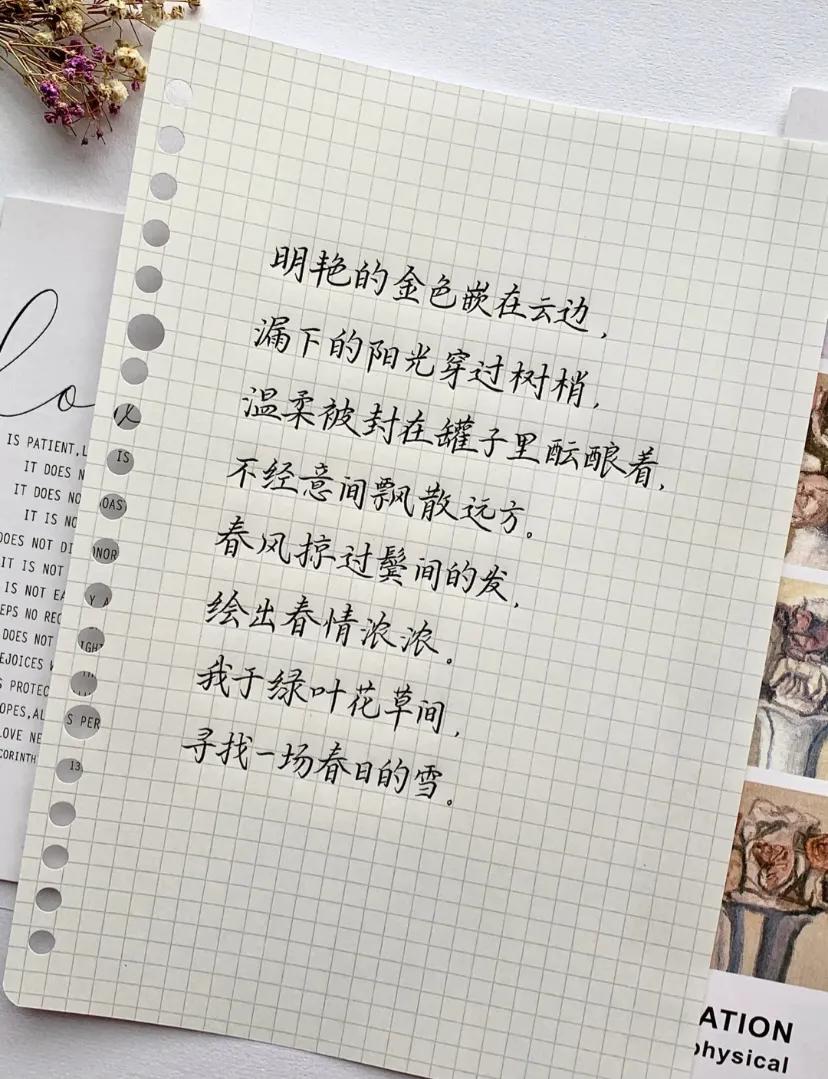 明艳的金色嵌在云边，
漏下的阳光穿过树梢，
温柔被封在罐子里酝酿着，
不经意间飘散远方。
春风掠过鬓间的发，
绘出春情浓浓。
我于绿叶花草间，
寻找一场春日的雪。
lo
IS PATIENT, L
IT DOES N
IT DOES NO
IT IS NO
DOES NOT DI
IT IS NOT
IS NOT EA
EPS NO REC
DOES NOT
EJOICES
S PROTEC
OPES, AL
LOVE NE
CORINTH
IS
OAS
NOR
Y A
IGHT
S PER
13
ATION
physical